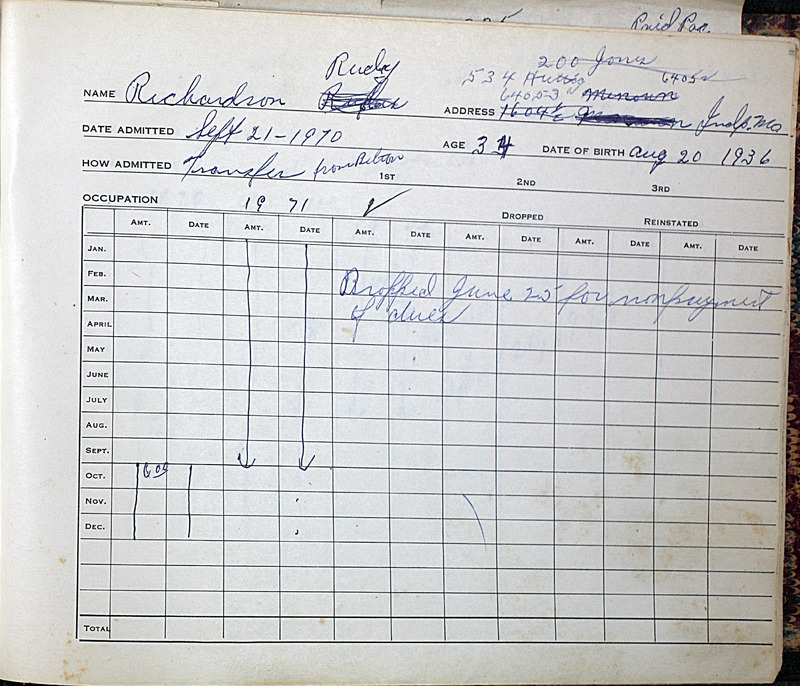 Paid
Rudy
200 Jones
534 64052
NAME Richardson 64053
ADDRESS 1604 E Indp. Mo
DATE ADMITTED Sept 21-1970 AGE 34 DATE OF BIRTH Aug 20 1936
HOW ADMITTED Transfer from Belton 1ST 2ND 3RD
OCCUPATION 19 71 ✓ DROPPED REINSTATED
AMT. DATE AMT. DATE AMT. DATE AMT. DATE AMT. DATE AMT. DATE
JAN.
FEB.
Dropped June 25 for nonpayment
MAR.
of dues
APRIL
MAY
JUNE
JULY
AUG.
SEPT.
OCT. 6.00
NOV.
DEC.
TOTAL